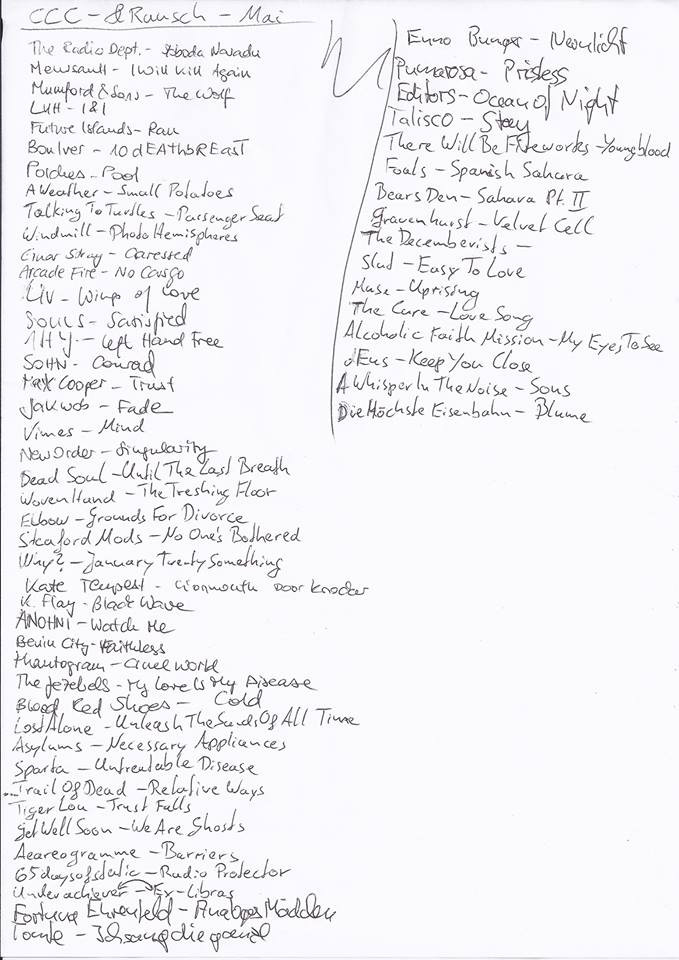 CCC - & Rausch - Mai
The Radio Dept. - Sloboda Narodu
Meursault - I Will Kill Again
Mumford & Sons - The Wolf
LUH - I&I
Future Islands - Ran
Bon Iver - 10 dEAThbREast
Porches - Pool
A Weather - Small Potatoes
Talking To Turtles - Passenger Seat
Windmill - Photo Hemispheres
Einar Stray - Caressed
Arcade Fire - No Cars go
LIV - Wings of Love
SOULS - Satisfied
1HY - Left Hand Free
SOHN - Conrad
Max Cooper - Trust
Jakwob - Fade
Vimes - Mind
New Order - Singularity
Dead Soul - Until The Last Breath
Woven Hand - The Treshing Floor
Elbow - Grounds For Divorce
Sleaford Mods - No One's Bothered
Why? - January Twenty Something
Kate Tempest - Lionmouth Door Knocker
K. Flay - Black Wave
ANOHNI - Watch Me
Benin City - Faithless
Phantogram - Cruel World
The Jezebels - My Love Is My Disease
Blood Red Shoes - Cold
Lost Alone - Unleash The Sands Of All Time
Asylums - Necessary Appliances
Sparta - Untreatable Disease
...Trail Of Dead - Relative Ways
Tiger Lou - Trust Falls
Get Well Soon - We Are Ghosts
Aereogramme - Barriers
65daysofstatic - Radio Protector
Underachiever - Ex-Libras
Fortuna Ehrenfeld - Mädchen
Tomte - Ich sang die ganze
Enno Bunger - Neonlicht
Pumarosa - Pristess
Editors - Ocean Of Night
Talisco - Stay
There Will Be Fireworks - Youngblood
Foals - Spanish Sahara
Bears Den - Sahara Pt. II
Gravenhurst - Velvet Cell
The Decemberists -
Slut - Easy To Love
Muse - Uprising
The Cure - Love Song
Alcoholic Faith Mission - My Eyes To See
dEus - Keep You Close
A Whisper In The Noise - Sons
Die Höchste Eisenbahn - Blume